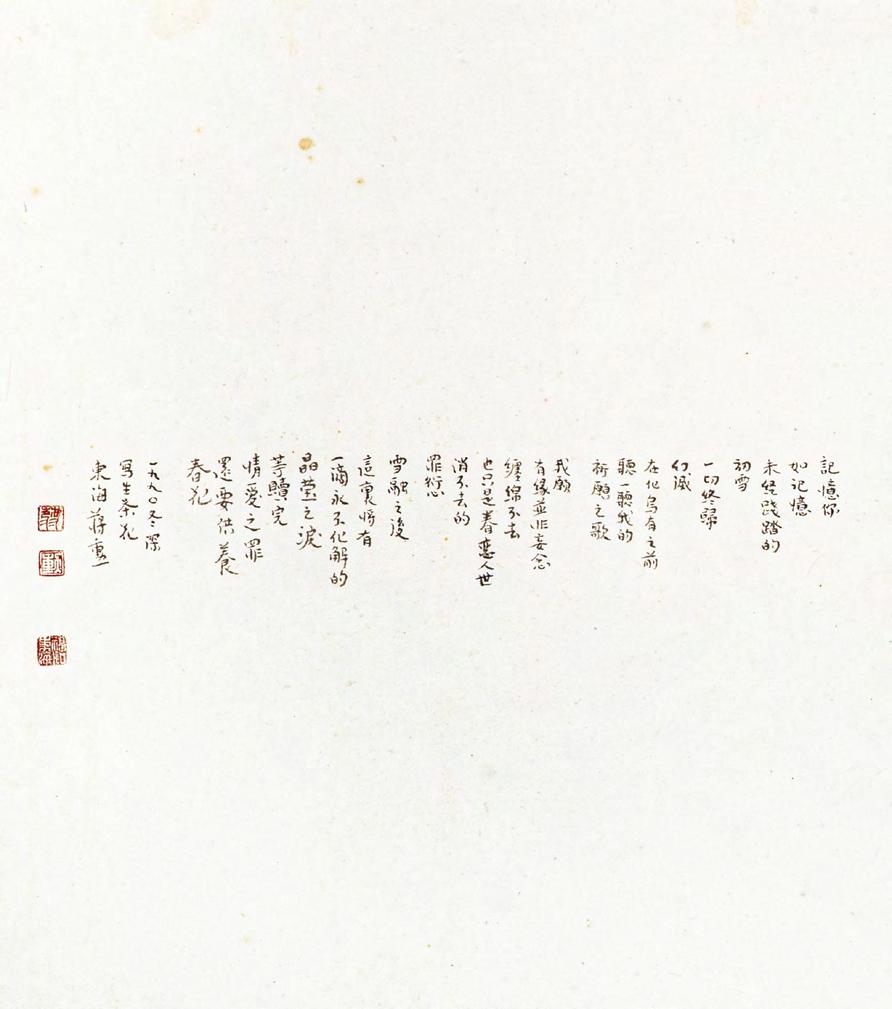 記憶你
如記憶
未經踐踏的
初雪
一切終歸
幻滅
在化烏有之前
聽一聽我的
祈願之歌
我願
有緣並非妄念
纏綿不去
也只是眷戀人世
消不去的
罪衍心
雪融之後
這裏將有
一滴永不化解的
晶瑩之淚
等贖完
情愛之罪
還要供養
春花
一九九〇冬深
寫生茶花
東海蔣勳
蔣
勳